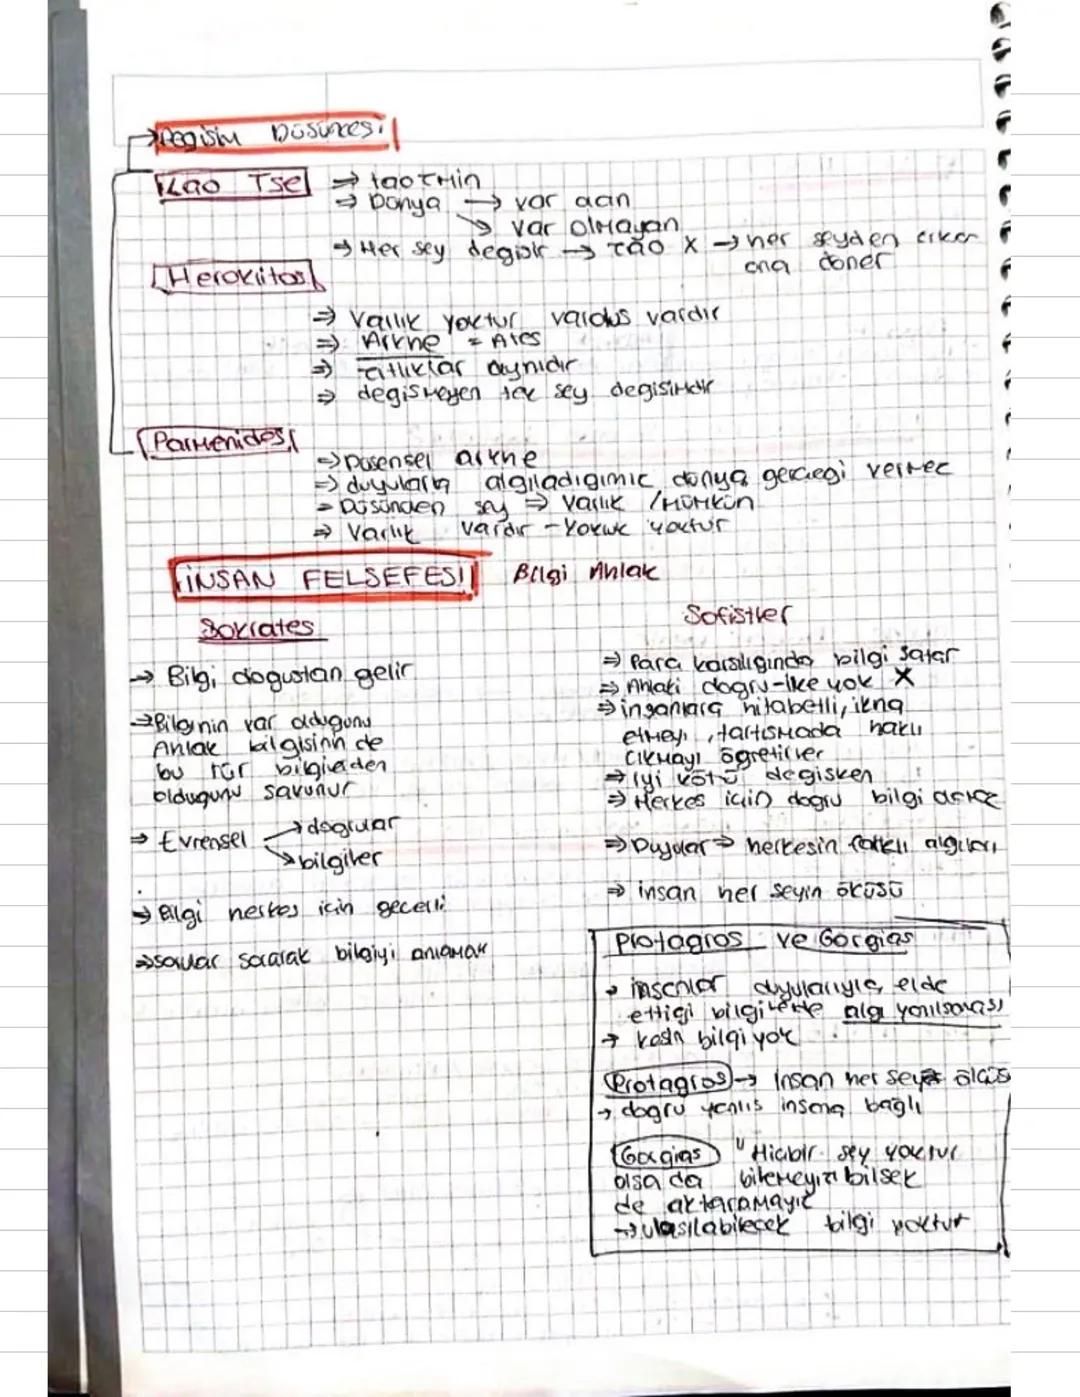 Degisim Düsüncesi
Lao Tse ⇒ taoizmin
⇒ Dünya → var olan
→ var olmayan
⇒ Her sey degisir → Tao X → her seyden
ona döner
Heroklitos
⇒ Varlık yoktur varolus vardır
⇒ Arkhe = Ates
⇒ zıtlıklar aynıdır
⇒ degismeyen tek sey degisimdir
Parmenides
⇒ Düsünsel arkhe
⇒ duyularla algıladıgımız dünya gercegi vermez
⇒ Düsünülen sey ⇒ Varlık / Mümkün
⇒ Varlık vardır - Yokluk yoktur
İNSAN FELSEFESİ Bilgi Ahlak
Sokrates
→ Bilgi dogustan gelir
→ Bilginin var oldugunu
Ahlak bilgisinin de
bu tür bilgilerden
oldugunu savunur
⇒ Evrensel → dogrular
→ bilgiler
→ Bilgi herkes icin gecerli
⇒ sorular sorarak bilgiyi anlamak
Sofistler
⇒ Para karsılıgında bilgi satar
⇒ Ahlaki dogru-ilke yok X
⇒ insanlara hitabetli, ikna
etmeyi, tartısmada haklı
cıkmayı ögretirler
⇒ iyi kötü degisken
⇒ Herkes icin dogru bilgi
⇒ Duyular ⇒ herkesin farklı algıları
⇒ insan her seyin ölcüsü
Protagros ve Gorgias
→ insanlar duyularıyla elde
ettigi bilgilerde algı yanılsaması
→ kesin bilgi yok
Protagros → insan her seyin ölcüsü
→ dogru yanlıs insana baglı
Gorgias " Hicbir sey yoktur
olsa da bilemeyiz bilsek
de aktaramayız
→ ulasılabilecek bilgi yoktur